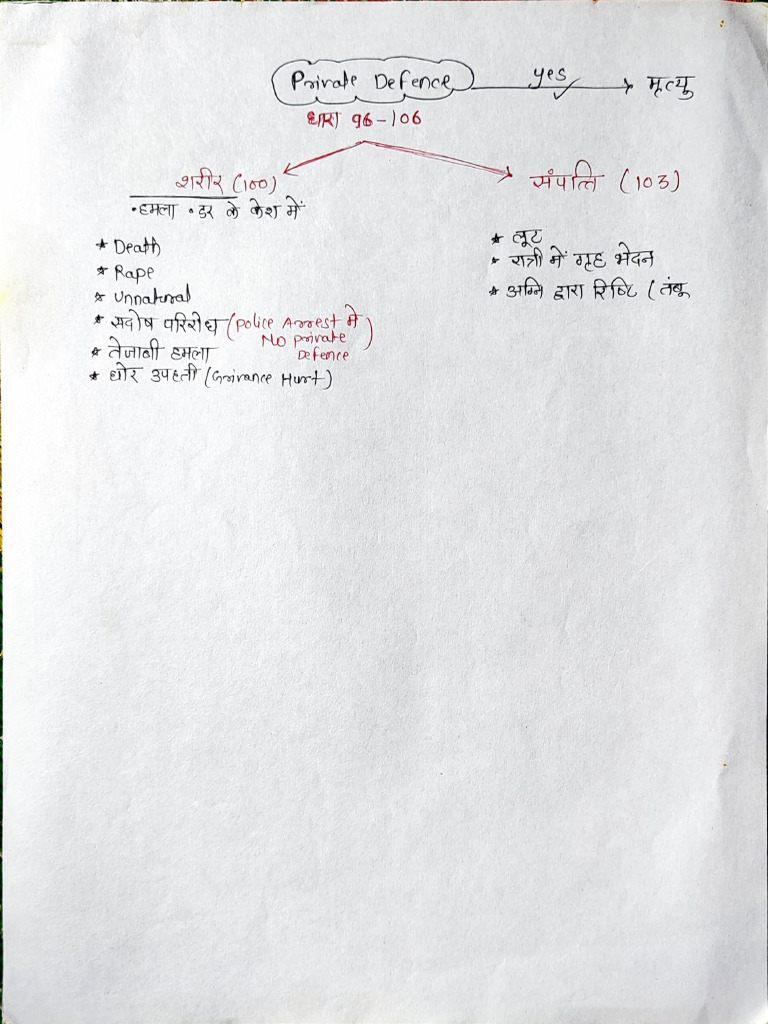 Private Defence yes मृत्यु
धारा 96-106
शरीर (100) संपत्ति (103)
•हमला •डर के केश में
* Death
* Rape
* unnatural
* सदोष परिरोध (police Arrest में
No private
Defence)
* तेजाबी हमला
* घोर उपहती (Grirance Hurt)
* लूट
* रात्री में गृह भेदन
* अग्नि द्वारा रिष्टि (तंबू